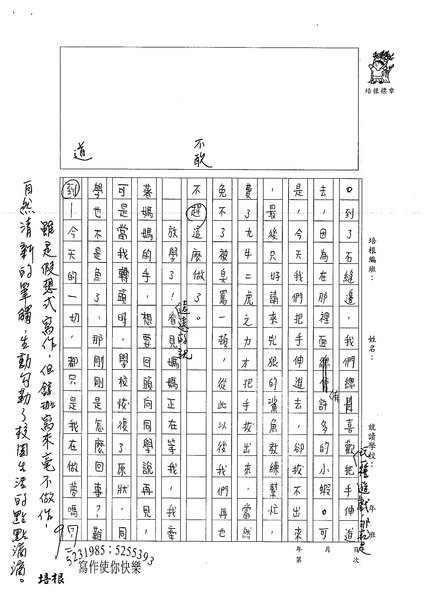 培根標章
培根編班:
姓名:
就讀學校:
年 班
年 月 日
第 次
。到了石縫邊,我們總是喜歡把手伸進
去,因為在那裡面總會有許多的小蝦。可
是,今天我們把手伸進去,卻拔不出來
,最後只好請來兇狠的鯊魚教練幫忙,
費了九牛二虎之力才把手救出來,當然
免不了被臭罵一頓,從此以後我們再也
不敢這麼做了。
放學了!遠遠的就看見媽媽正在等我,牽
著媽媽的手,想要回頭向同學說再見,
可是當我轉頭時,學校恢復了原狀,同
學也不是魚了,那剛剛是怎麼回事?難
道今天的一切,都只是我在做夢嗎?
不敢
道
雖是假想式寫作,但鋪排寫來毫不做作,
自然清新的筆觸,生動勾勒了校園生活的點點滴滴。
5231985;5255393
寫作使你快樂
培根